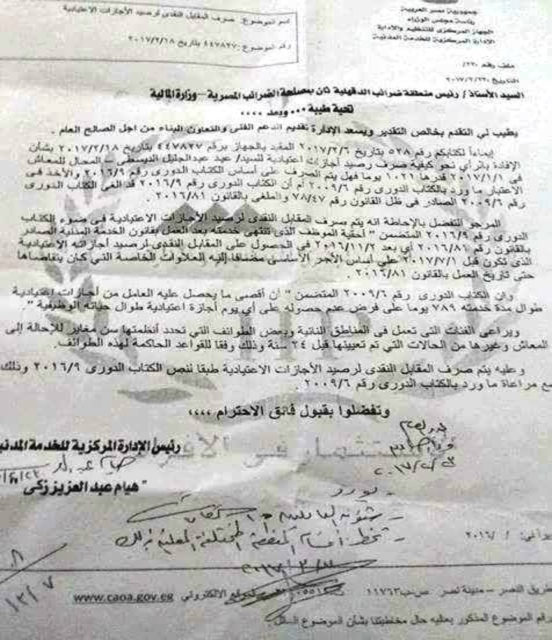 جمهورية مصر العربية
رئاسة مجلس الوزراء
الجهاز المركزى للتنظيم والإدارة
الإدارة المركزية للخدمة المدنية
اسم الموضوع: صرف المقابل النقدى لرصيد الأجازات الاعتيادية
رقم الموضوع: ٤٤٧٨٣٧ بتاريخ ٢٠١٧/٢/١٨
ملف رقم
التاريخ
السيد الأستاذ / رئيس منطقة ضرائب الدقهلية ثان بمصلحة الضرائب المصرية - وزارة المالية
تحية طيبة ... وبعد ،،،،
يطيب لى التقدم بخالص التقدير ويسعد الإدارة تقديم الدعم الفنى والتعاون البناء من اجل الصالح العام .
إيماءاً لكتابكم رقم ٥٣٨ بتاريخ ٢٠١٧/٢/٦ المقيد بالجهاز برقم ٤٤٧٨٣٧ بتاريخ ٢٠١٧/٢/١٨ بشأن
الإفادة بالرأى نحو كيفية صرف رصيد أجازات اعتيادية للسيد/ عبد الجليل الديسطى - المحال للمعاش
فى ٢٠١٧/١/١ قدرها ١٠٢١ يوما فهل يتم الصرف على أساس الكتاب الدورى رقم ٢٠١٦/٩ والأخذ فى
الاعتبار ما ورد بالكتاب الدورى رقم ٢٠٠٩/٦ أم أن الكتاب الدورى رقم ٢٠١٦/٩ قد الغى الكتاب الدورى
رقم ٢٠٠٩/٦ الصادر فى ظل القانون رقم ٧٨/٤٧ والملغى بالقانون ٢٠١٦/٨١ .
المرجو التفضل بالإحاطة انه يتم صرف المقابل النقدى لرصيد الأجازات الاعتيادية فى ضوء الكتاب
الدورى رقم ٢٠١٦/٩ المتضمن " أحقية الموظف الذى تنتهى خدمته بعد العمل بقانون الخدمة المدنية الصادر
بالقانون رقم ٢٠١٦/٨١ أى بعد ٢٠١٦/١١/٢ فى الحصول على المقابل النقدى لرصيد أجازاته الاعتيادية
الذى تكون قبل ٢٠١٧/٧/١ على أساس الأجر الأساسى مضافا إليه العلاوات الخاصة التى كان يتقاضاها
حتى تاريخ العمل بالقانون ٢٠١٦/٨١ .
وان الكتاب الدورى رقم ٢٠٠٩/٦ المتضمن " ان أقصى ما يحصل عليه العامل من أجازات اعتيادية
طوال مدة خدمته ٧٨٩ يوما على فرض عدم حصوله على أى يوم أجازة اعتيادية طوال حياته الوظيفية "
ويراعى الفئات التى تعمل فى المناطق النائية وبعض الطوائف التى تحدد أنظمتها سن مغاير للإحالة إلى
المعاش وغيرها من الحالات التى تم تعيينها قبل ٢٤ سنة وذلك وفقا للقواعد الحاكمة لهذه الطوائف.
وعليه يتم صرف المقابل النقدى لرصيد الأجازات الاعتيادية طبقا لنص الكتاب الدورى ٢٠١٦/٩ وذلك
مع مراعاة ما ورد بالكتاب الدورى رقم ٢٠٠٩/٦ .
وتفضلوا بقبول فائق الاحترام ،،،،
رئيس الإدارة المركزية للخدمة المدنية
" هيام عبد العزيز زكى
طريق النصر - مدينة نصر ص.ب ١١٧٦٣
الموقع الالكترونى www.caoa.gov.eg
رقم الموضوع المذكور بعاليه حال مخاطبتنا بشأن الموضوع